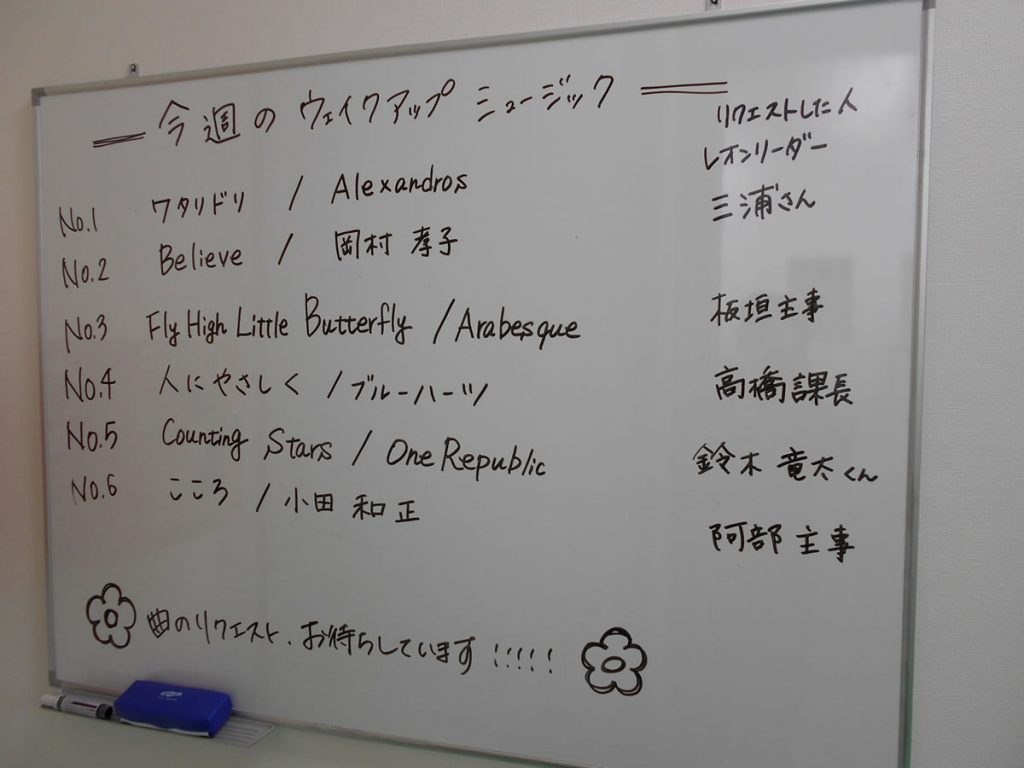 今週のウェイクアップ ミュージック
リクエストした人
No.1 ワタリドリ / Alexandros レオンリーダー
No.2 Believe / 岡村 孝子 三浦さん
No.3 Fly High Little Butterfly / Arabesque 板垣主事
No.4 人にやさしく / ブルーハーツ 高橋課長
No.5 Counting Stars / One Republic 鈴木 竜太くん
No.6 こころ / 小田 和正 阿部 主事
曲のリクエスト、お待ちしています!!!!!